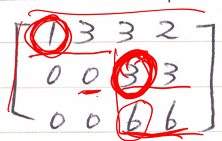 1 3 3 2
0 0 3 3
0 0 6 6